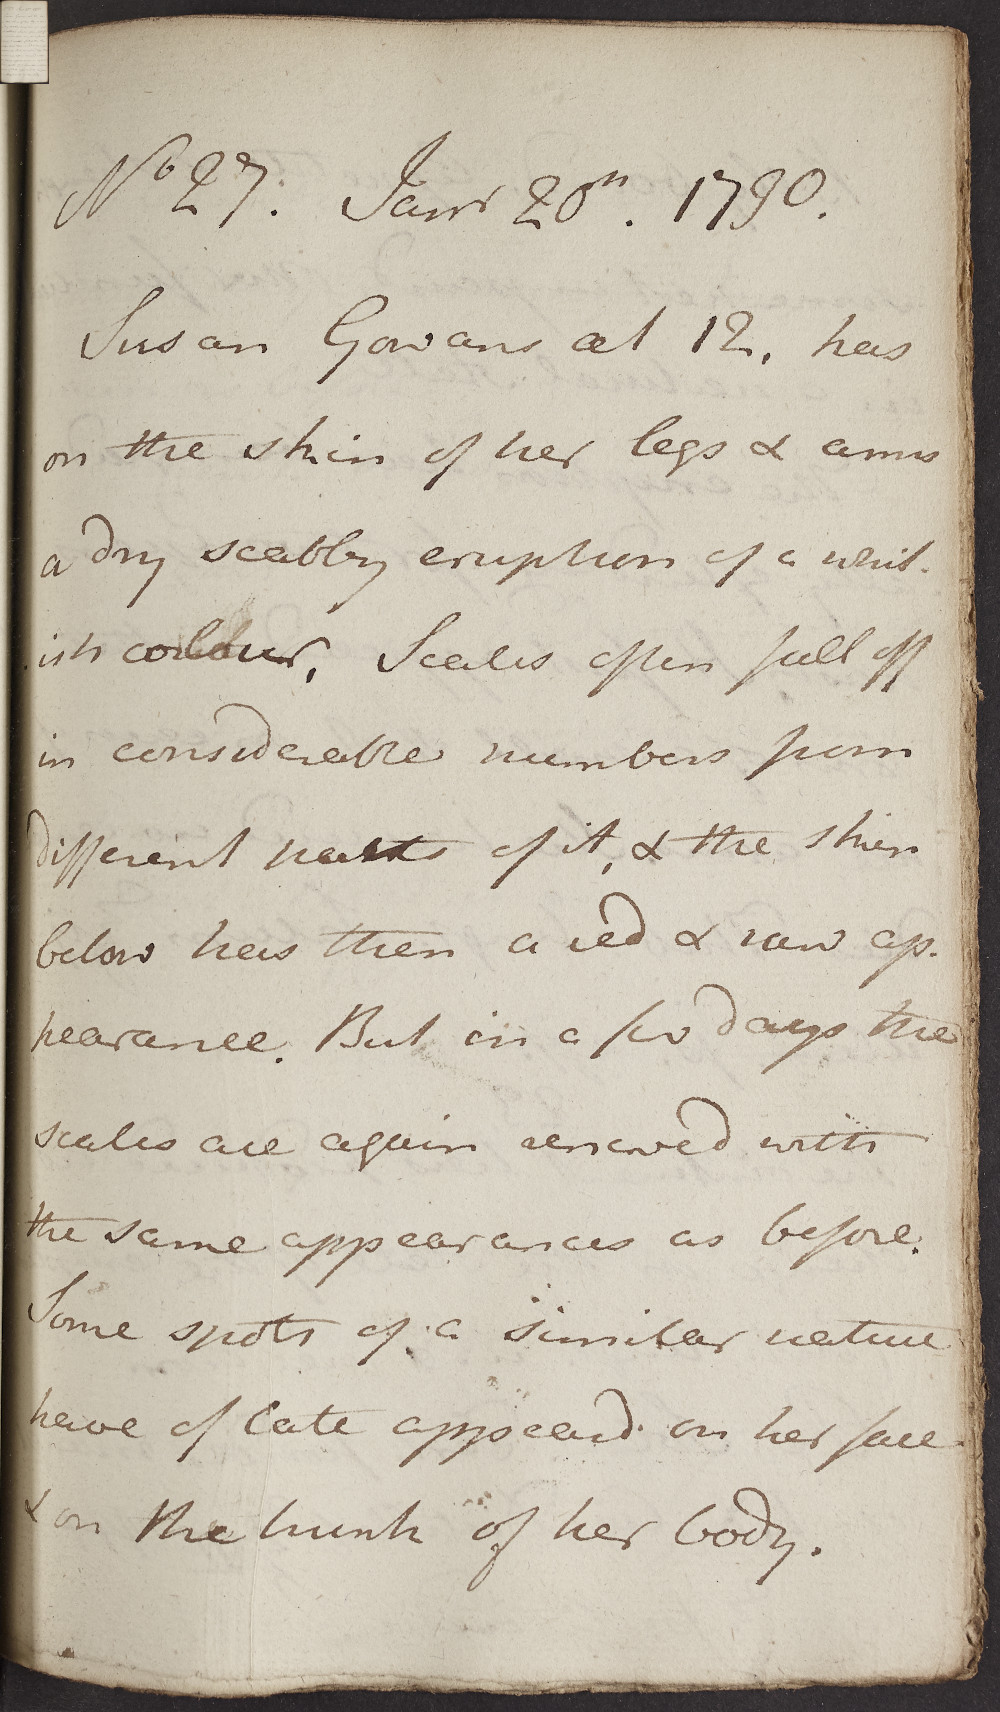 No 27. Janr 20th. 1790.
Susan Gowans æt 12, has
on the skin of her legs & arms
a dry scabby eruption of a whit-
ish colour, Scales often fall off
in considerable numbers from
different parts of it, & the skin
below has then a red & raw ap-
pearance. But in a few days the
scales are again renewed with
the same appearances as before.
Some spots of a similar nature
have of late appeard on her face
& on the trunk of her body.